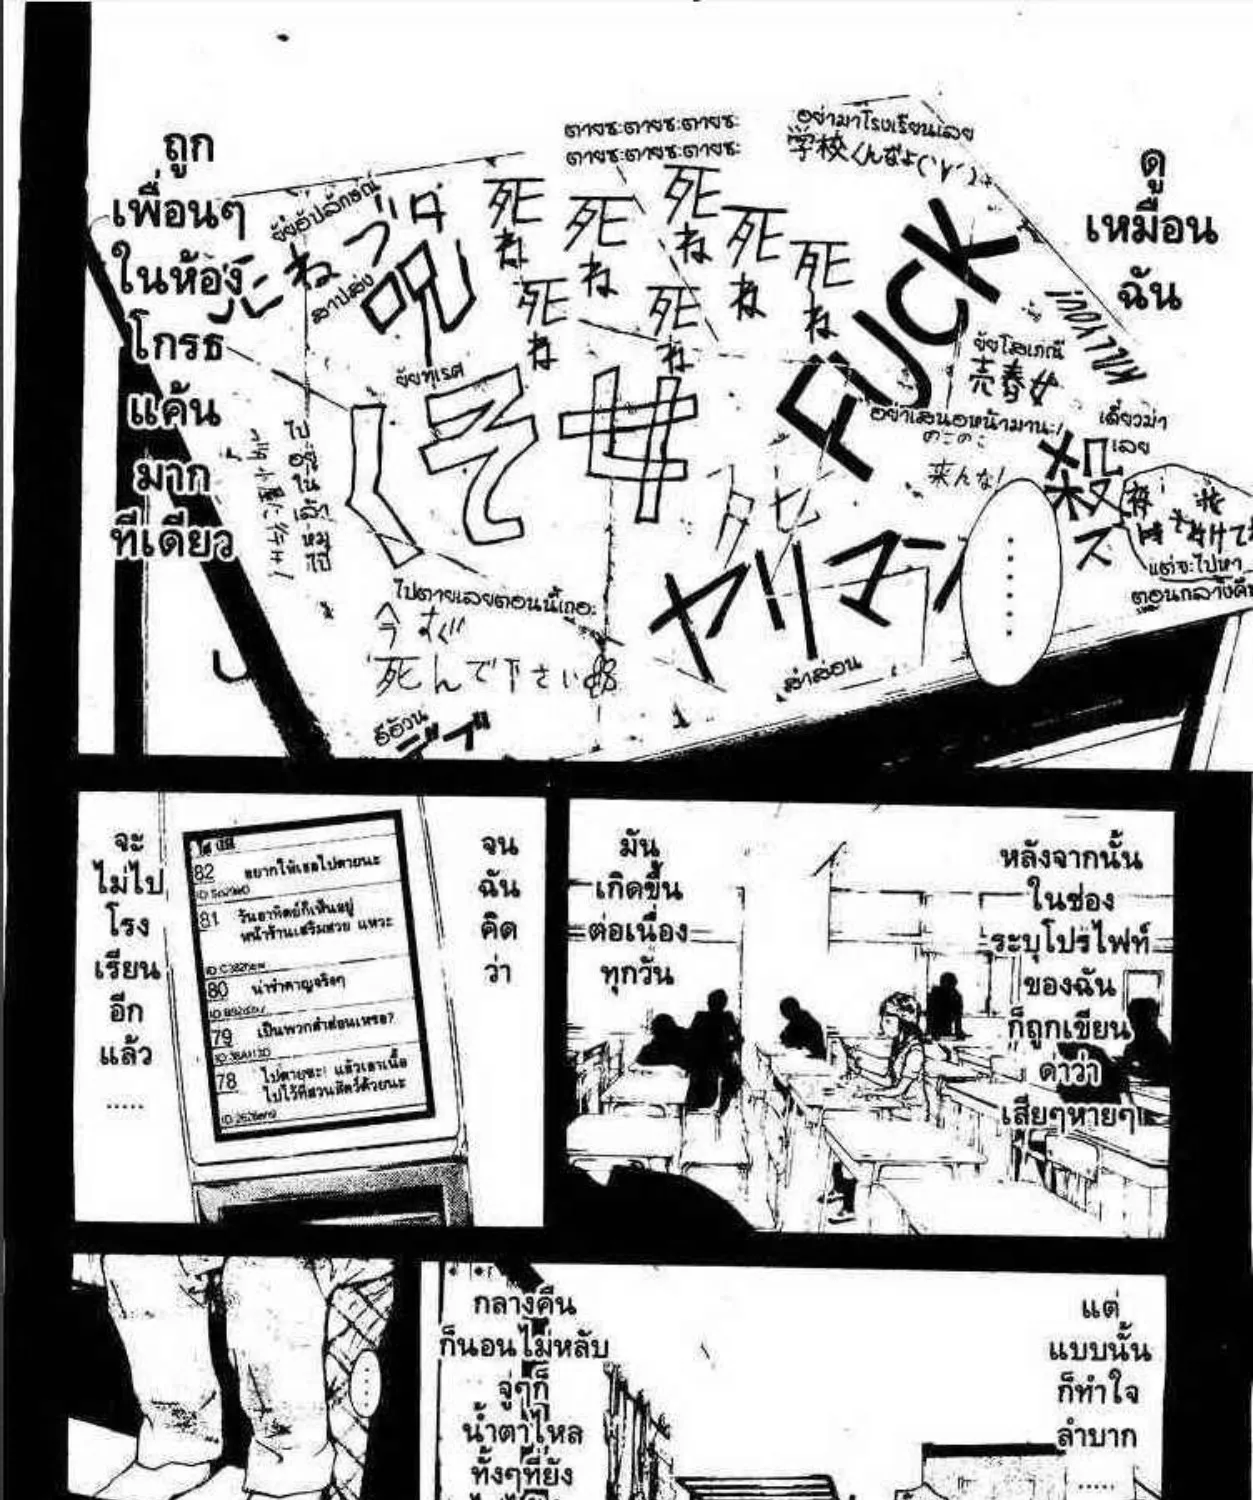 ดู
เหมือน
ฉัน
ถูก
เพื่อนๆ
ในห้อง
โกรธ
แค้น
มาก
ทีเดียว
ตายซะตายซะตายซะ
ตายซะตายซะตายซะ
อย่ามาโรงเรียนเลย
学校くんなよ(`∀´)
ยัยอัปลักษณ์
しねブタ
สาปส่ง
呪
死ね
死ね
死ね
死ね
死ね
死ね
死ね
FUCK
KILL YOU!
ยัยโสเภณี
売春女
ยัยทุเรศ
くそ女
อย่าเสนอหน้ามานะ!
のこのこ
来んな!
เดี๋ยวฆ่า
เลย
殺
ス
ไป
อยู่
ใน
เล้า
หมู
ไป
ヤリマン
สำส่อน
......
แต่จะไปหา
ตอนกลางคืน
ไปตายเลยตอนนี้เถอะ
今すぐ
死んで下さい
อีอ้วน
デブ
หลังจากนั้น
ในช่อง
ระบุโปรไฟท์
ของฉัน
ก็ถูกเขียน
ด่าว่า
เสียๆหายๆ
มัน
เกิดขึ้น
ต่อเนื่อง
ทุกวัน
จน
ฉัน
คิด
ว่า
82 อยากให้เธอไปตายนะ
81 วันอาทิตย์ก็เห็นอยู่
หน้าร้านเสริมสวย แหวะ
80 น่ารำคาญจริงๆ
79 เป็นพวกสำส่อนเหรอ?
78 ไปตายซะ! แล้วเอาเนื้อ
ไปไว้ที่สวนสัตว์ด้วยนะ
จะ
ไม่ไป
โรง
เรียน
อีก
แล้ว
.....
แต่
แบบนั้น
ก็ทำใจ
ลำบาก
.....
กลางคืน
ก็นอนไม่หลับ
จู่ๆก็
น้ำตาไหล
ทั้งๆที่ยัง
....